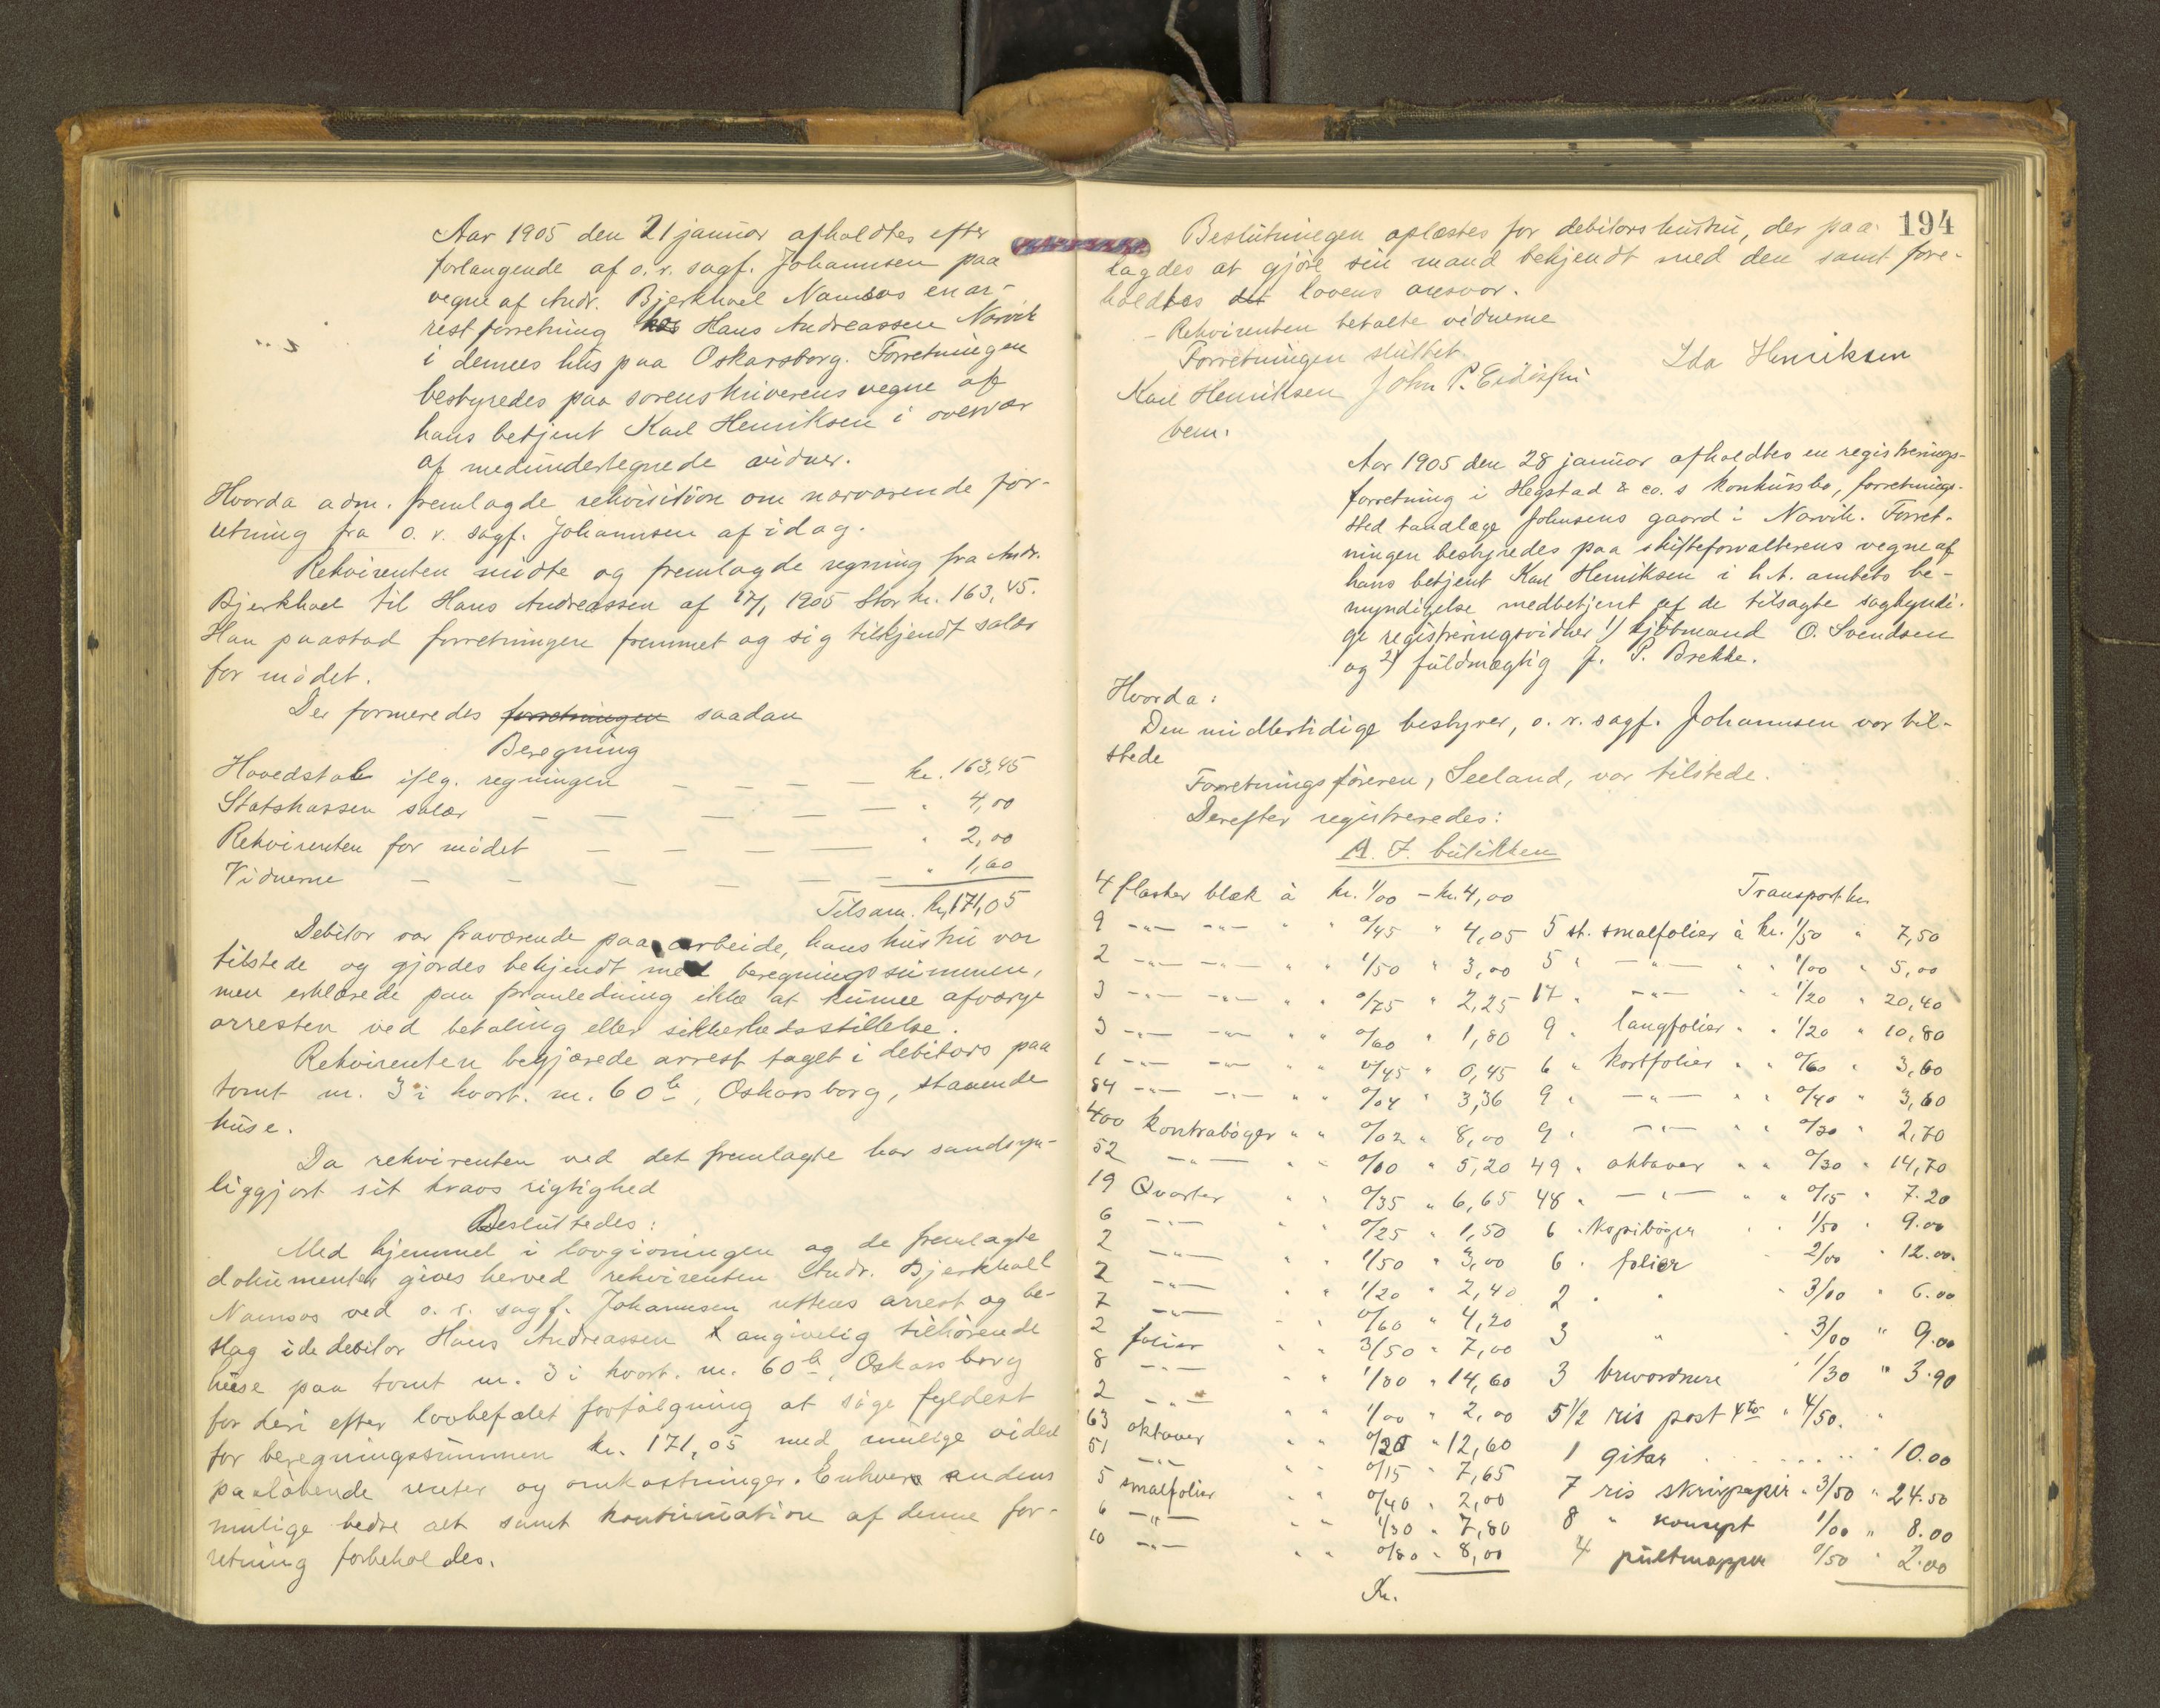 Aar 1905 den 21 januar afholdtes efter
forlangende af o. r. sagf. Johannsen paa
vegne af Andr. Bjerkhoel Namsos en ar-
rest forretning hos Hans Andreassen Narvik
i dennes hus paa Oskarsborg. Forretningen
bestyredes paa sorenskriverens vegne af
hans betjent Karl Henriksen i overvær
af medundertegnede vidner.
Hvorda adm. fremlagde rekvisition om nærværende for-
retning fra o. r. sagf. Johannsen af idag.
Rekvirenten mødte og fremlagde regning fra Andr.
Bjerkhoel til Hans Andreassen af 17/1 1905 stor kr. 163,45.
Han paastod forretningen fremmet og sig tilkjendt salær
for mødet.
Der formeredes forretningen saadan
Beregning
Hovedstol iflg. regningen — — — — kr. 163,45
Statskassen salær — — — — — " 4,00
Rekvirenten for mødet — — — — " 2,00
Vidnerne — — — — — — " 1,60
Tilsam. kr. 171,05
Debitor var fraværende paa arbeide, hans hustru var
tilstede og gjordes bekjendt med beregningssummen,
men erklærede paa foranledning ikke at kunne afværge
arresten ved betaling eller sikkerhedsstillelse.
Rekvirenten begjærede arrest taget i debitors paa
tomt n. 3 i kvart. n. 60 b, Oskarsborg, staaende
huse.
Da rekvirenten ved det fremlagte har sandsyn-
liggjort sit kravs rigtighed
Besluttedes:
Med hjemmel i lovgivningen og de fremlagte
dokumenter gives herved rekvirenten Andr. Bjerkhoel
Namsos ved o. r. sagf. Johannsen rettens arrest og be-
slag i de debitor Hans Andreassen angivelig tilhørende
huse paa tomt n. 3 i kvart. n. 60 b, Oskarsborg
for deri efter lovbefalet forfølgning at søge fyldest
for beregningssummen kr. 171,05 med mulige videre
paaløbende renter og omkostninger. Enhver andens
mulige bedre ret samt kontinuation af denne for-
retning forbeholdes.
194
Beslutningen oplæstes for debitors hustru, der paa-
lagdes at gjøre sin mand bekjendt med den samt fore-
holdtes det lovens ansvar.
- Rekvirenten betalte vidnerne
Forretningen sluttet
Karl Henriksen John P. Ida Henriksen
bem.
Aar 1905 den 28 januar afholdtes en registrerings-
forretning i Hegstad & co. s konkursbo, forretnings-
sted tandlæge Johnsens gaard i Narvik. Forret-
ningen bestyredes paa skifteforvalterens vegne af
hans betjent Karl Henriksen i h. t. amtets be-
myndigelse medbetjent af de tilsagte sagkyndi-
ge registreringsvidner 1) kjøbmand O. Svendsen
og 2) fuldmægtig J. P. Brekke.
Hvorda:
Den midlertidige bestyrer, o. r. sagf. Johannsen var til-
stede
Forretningsføreren, Seeland, var tilstede.
Derefter registreredes:
A. I butikken
4 flasker blæk à kr. 1/00 – kr. 4,00 Transport kr.
9 —"— —"— " " 0/45 " 4,05 5 st. smalfolier à kr. 1/50 " 7,50
2 —"— —"— " " 1/50 " 3,00 5 " —"— " " 1/00 " 5,00
3 —"— —"— " " 0/75 " 2,25 17 " —"— " " 1/20 " 20,40
3 —"— —"— " " 0/60 " 1,80 9 " langfolier " " 1/20 " 10,80
1 —"— —"— " " 0/45 " 0,45 6 " kortfolier " " 0/60 " 3,60
84 —"— —"— " " 0/04 " 3,36 9 " —"— " " 0/40 " 3,60
400 kontrabøger " " 0/02 " 8,00 9 " —"— " " 0/30 " 2,70
52 —"— " " 0/10 " 5,20 49 " oktaver " " 0/30 " 14,70
19 Qvarter " " 0/35 " 6,65 48 " —"— " " 0/15 " 7.20
6 —"— " " 0/25 " 1,50 6 " Kopibøger " " 1/50 " 9.00
2 —"— " " 1/50 " 3,00 6 " folier " 2/00 " 12.00.
2 —"— " " 1/20 " 2,40 2 " " " 3/00 " 6.00
7 —"— " " 0/60 " 4,20 3 " " 3/00 " 9.00
2 folier " " 3/50 " 7,00 3 brevordnere " 1/30 " 3.90
8 —"— " " 1/80 " 14,60 5 1/2 ris post 4to " 4/50. "
2 —"— " " 1/00 " 2,00 1 gitar " 10.00
63 oktaver " " 0/20 " 12,60 7 ris skrivpapir " 3/50 " 24.50
51 —"— " " 0/15 " 7,65 8 " konsept 1/00 " 8.00
5 smalfolier " " 0/40 " 2,00 4 pultmapper 0/50 " 2.00
6 —"— " " 1/30 " 7,80
10 —"— " " 0/80 " 8,00
Kr.